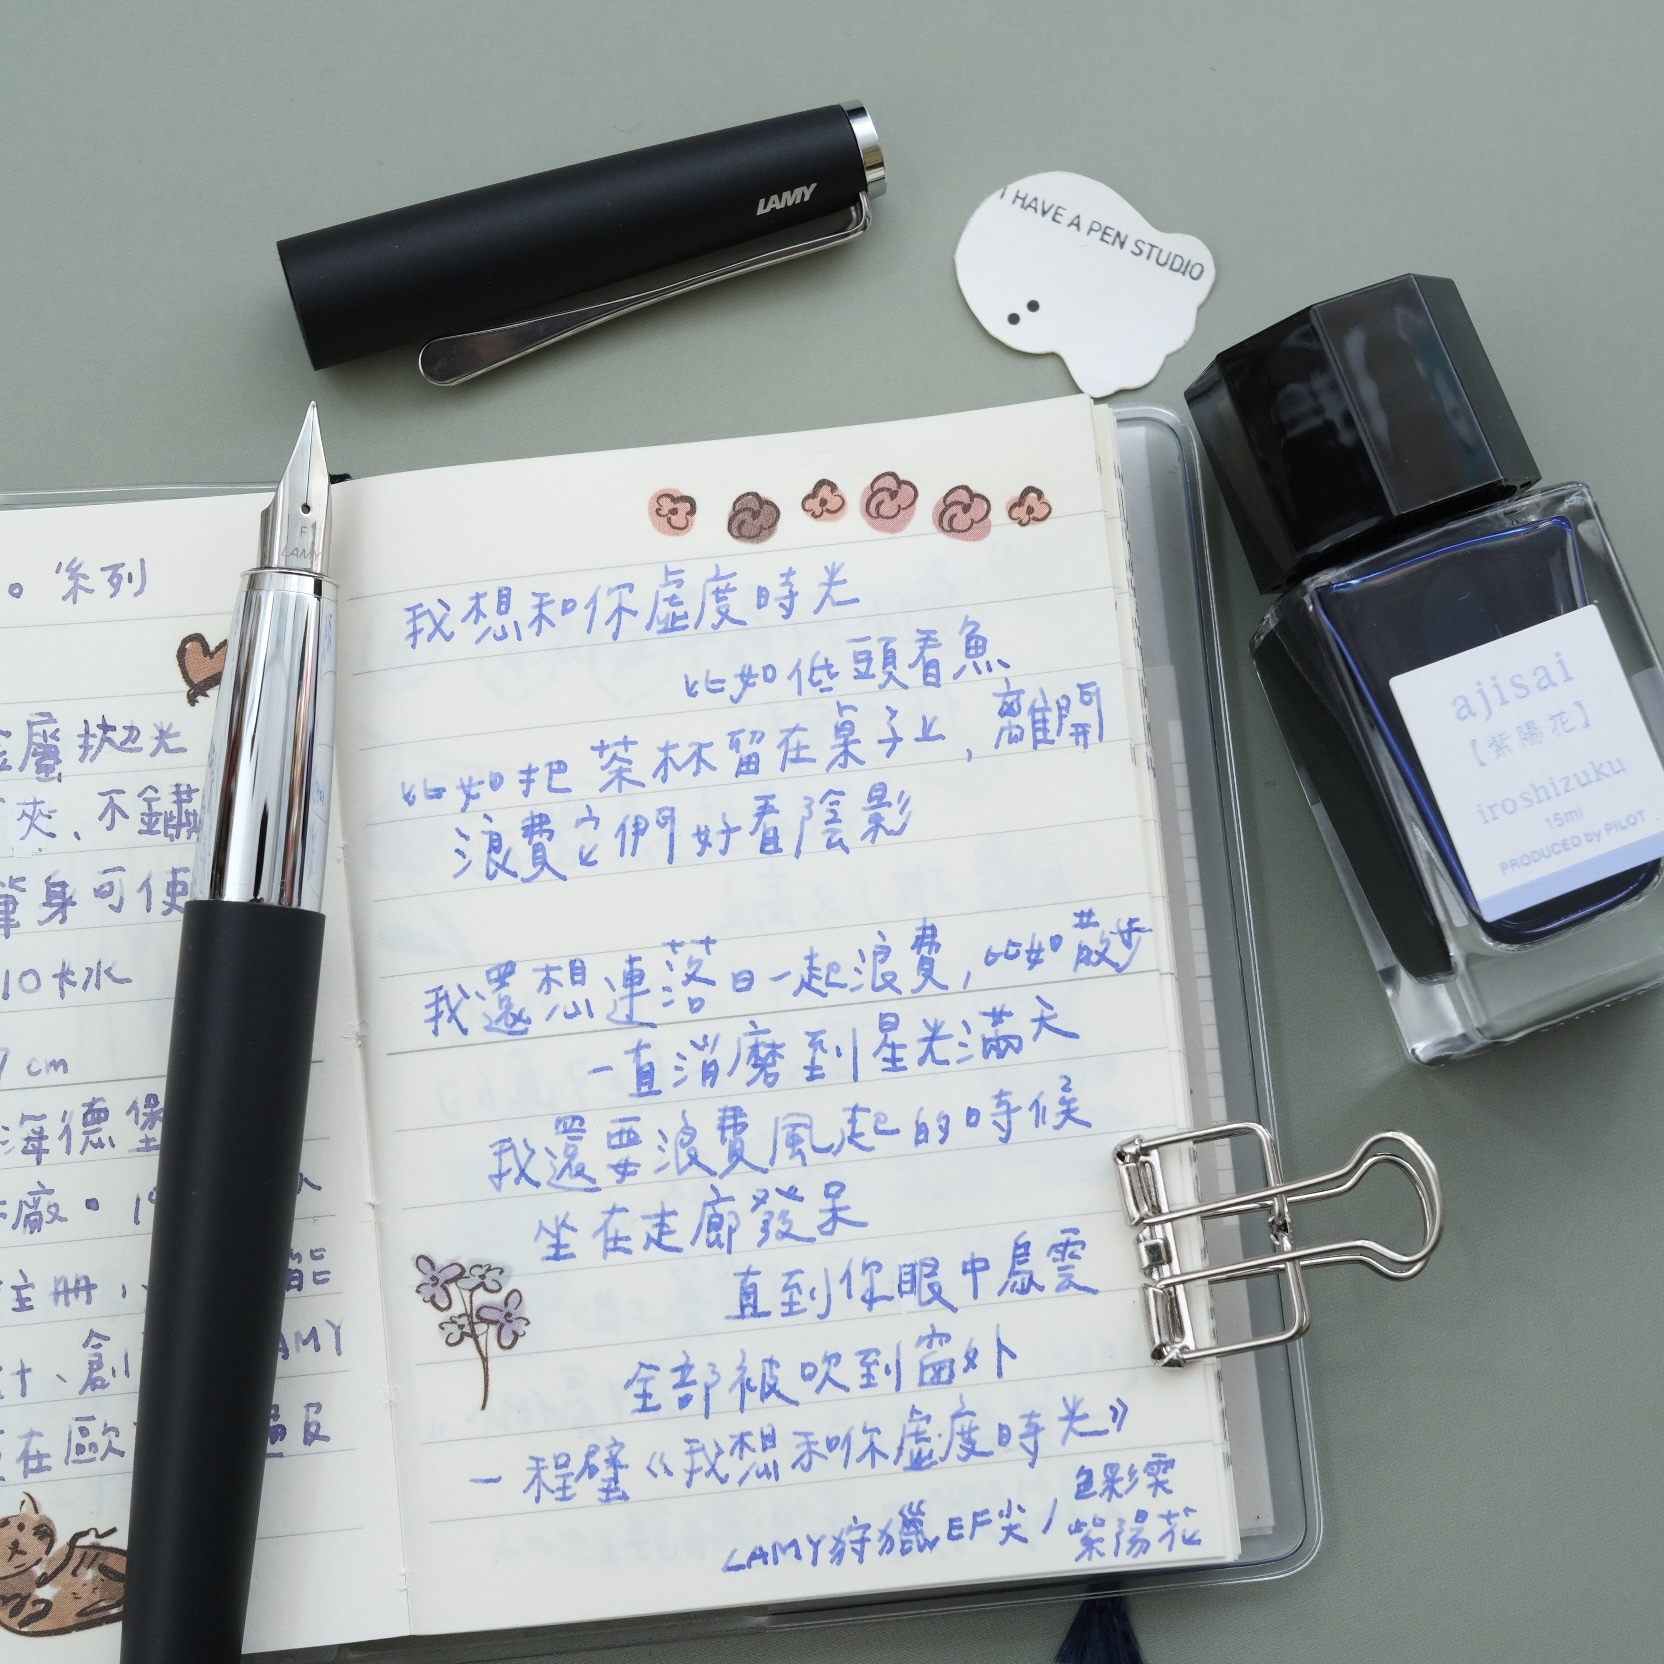 LAMY
I HAVE A PEN STUDIO
F
LAMY
ajisai
【紫陽花】
iroshizuku
15ml
PRODUCED by PILOT
。系列
金屬拋光
夾、不鏽
筆身可使
10卡水
7cm
海德堡
廠。19
註冊,
計、創 LAMY
在歐
我想和你虛度時光
比如低頭看魚
比如把茶杯留在桌子上,離開
浪費它們好看陰影
我還想連落日一起浪費,比如散步
一直消磨到星光滿天
我還要浪費風起的時候
坐在走廊發呆
直到你眼中烏雲
全部被吹到窗外
—程璧《我想和你虛度時光》
LAMY狩獵EF尖/色彩雫
紫陽花